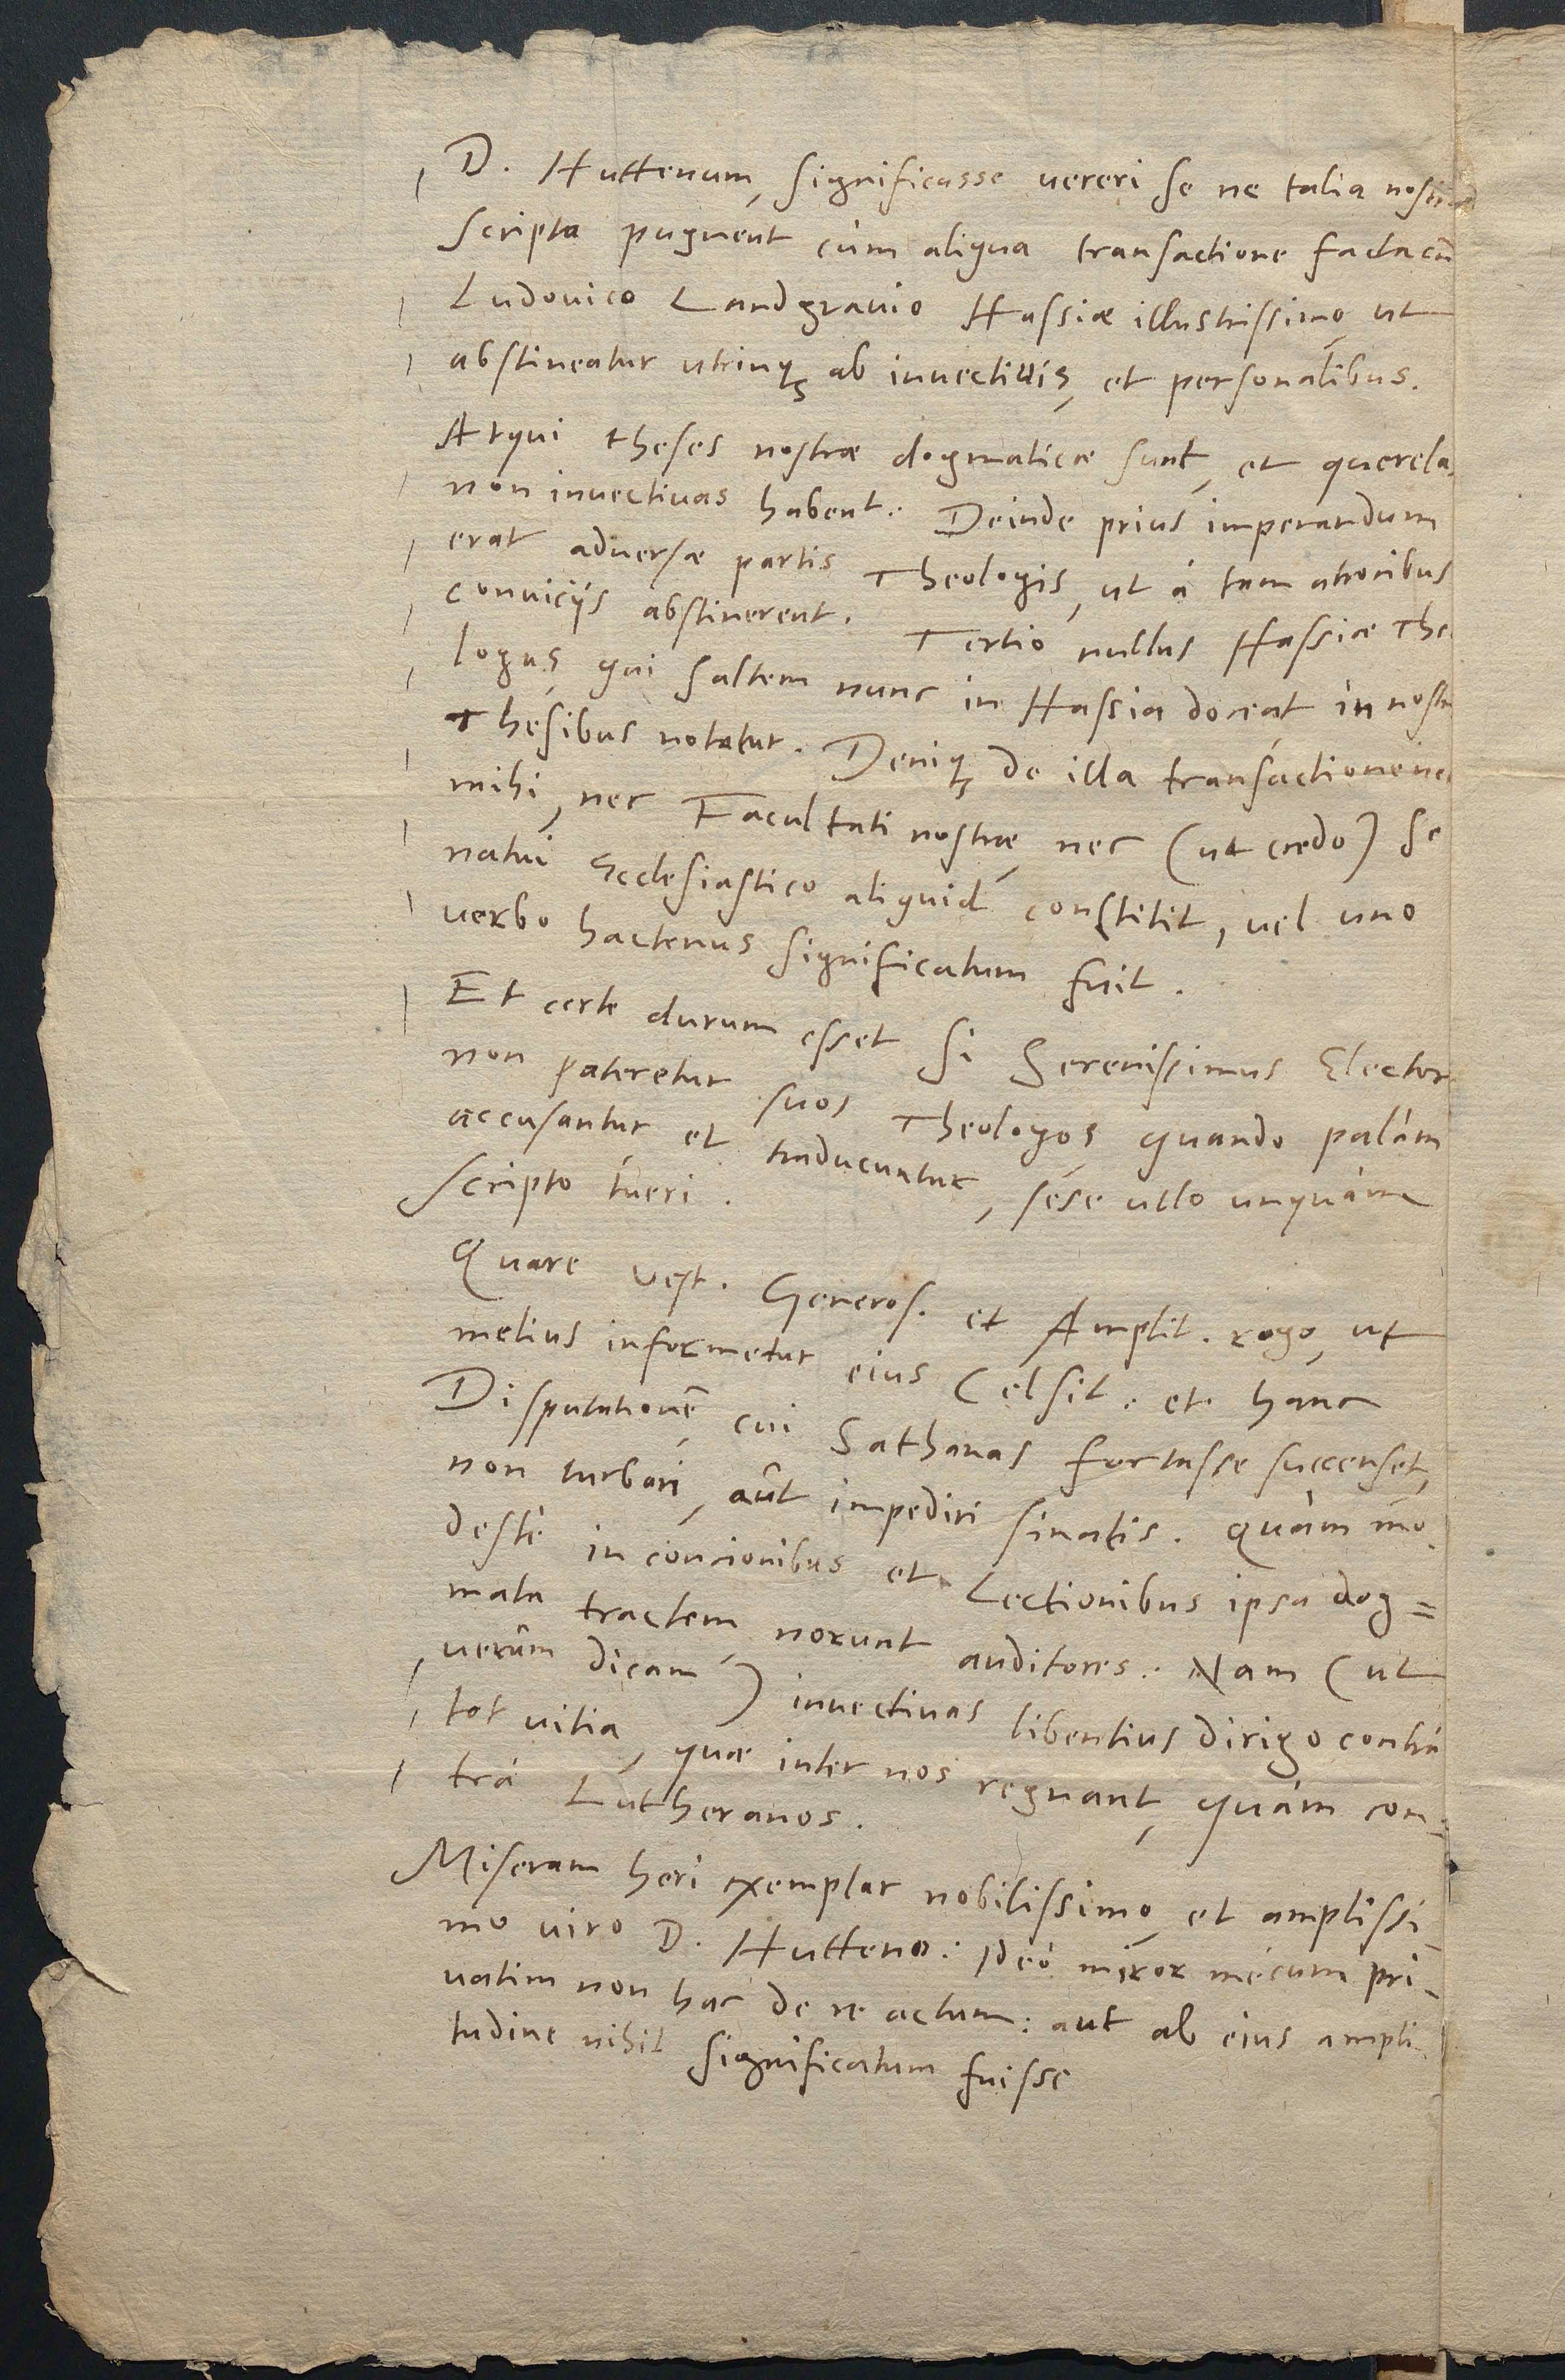 D. Huttenum, significasse uereri se ne talia nostra
scripta pugnent cum aliqua transactione facta cū
Ludouico Landgrauio Hassiæ illustrissimo, ut
abstineatur utrinq; ab inuectiuis, et personalibus.
Atqui theses nostræ dogmaticæ sunt, et querela
non inuectiuas habent. Deinde prius imperandum
erat aduersæ partis Theologis, ut à tam atrocibus
conuicijs abstinerent. Tertio nullus Hassiæ Theo
logus, qui saltem nunc in Hassia doceat, in nostris
Thesibus notatur. Deniq; de illa transactione nec
mihi, nec Facultati nostræ, nec (ut credo) Se
natui Ecclesiastico aliquid constitit, uel uno
uerbo hactenus significatum fuit.
Et certe durum esset si Serenissimus Elector
non pateretur suos Theologos, quando palàm
accusantur et traducuntur, sese ullo unquàm
scripto tueri.
Quare vest. Generos. et Amplit. rogo, ut
melius informetur eius Celsit. et hanc
Disputationē, cui Sathanas fortasse succenset,
non turbari, aut impediri sinatis. Quàm mo
destè in concionibus et Lectionibus ipsa dog=
mata tractem, norunt auditores. Nam (ut
uerum dicam) inuectiuas libentius dirigo contra
tot uitia, quæ inter nos regnant, quàm con=
trà Lutheranos.
Miseram heri exemplar nobilissimo, et amplissi
mo uiro D. Hutteno: Ideo miror mecum pri
uatim non hac de re actum: aut ab eius ampli
tudine nihil significatum fuisse